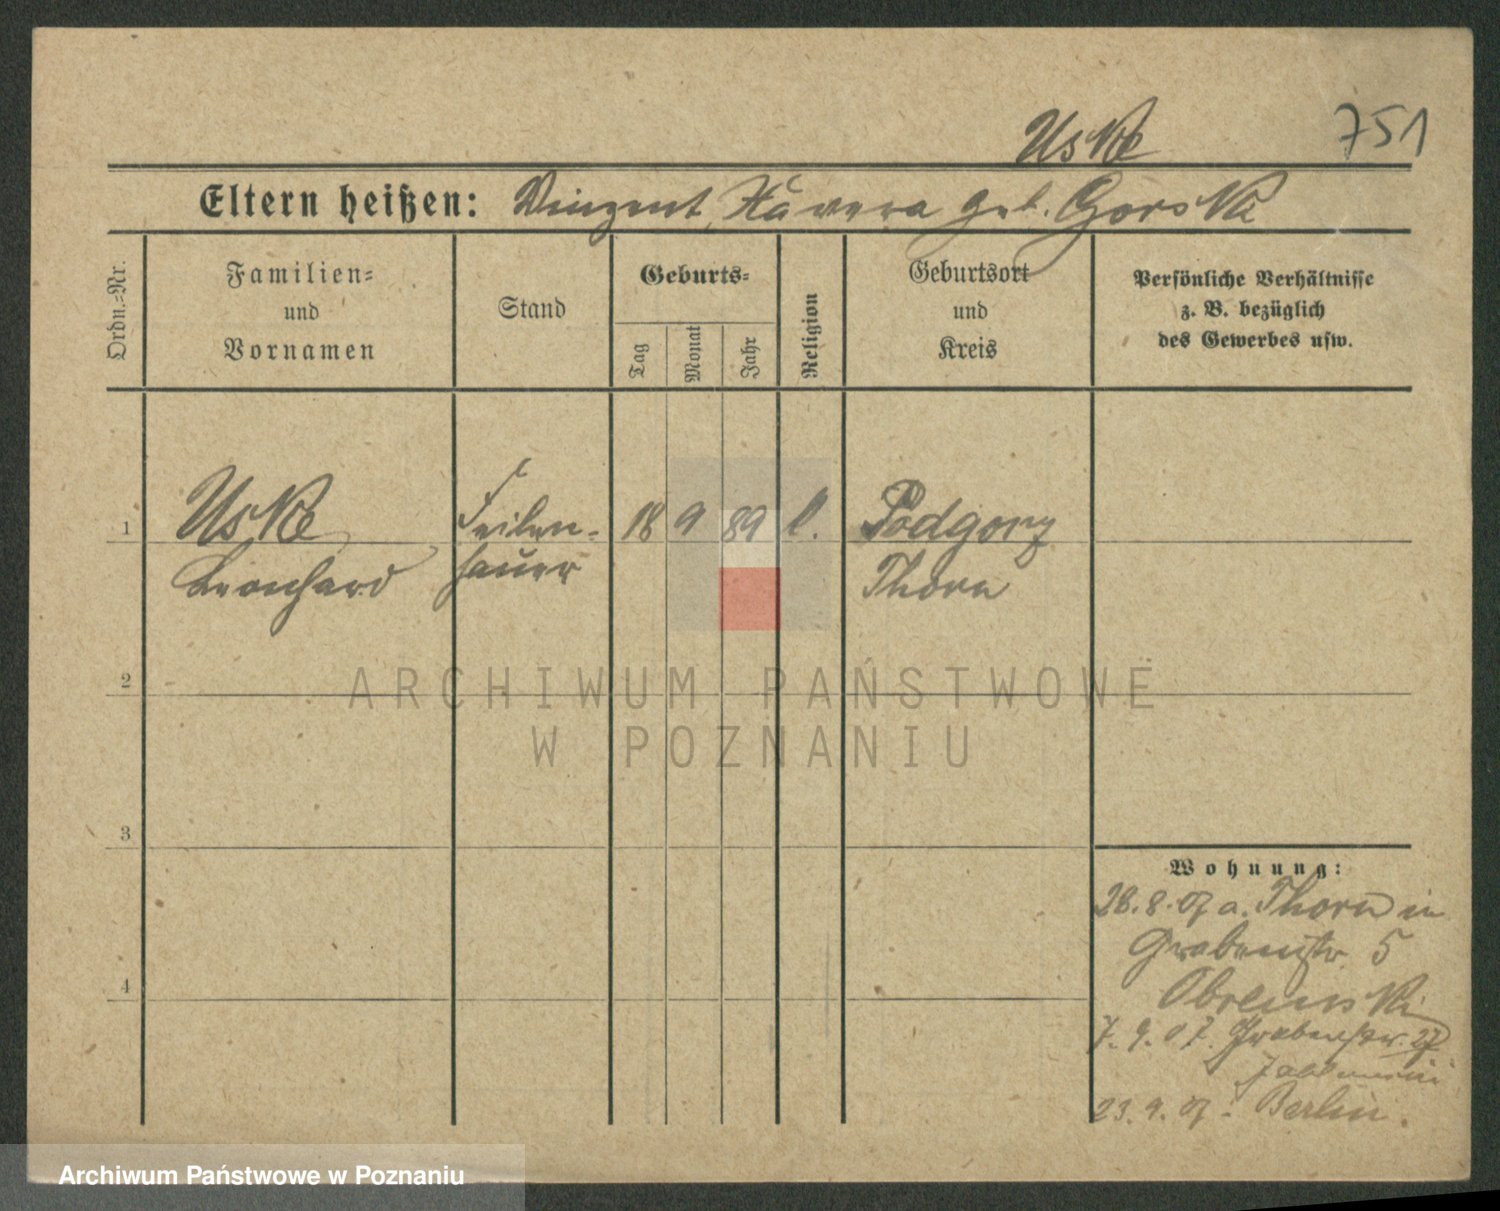 Uske
751
Eltern heißen: Vinzent, Xavera geb. Gorski
Ordn.=Nr.
Familien=
und
Vornamen
Stand
Geburts=
Tag
Monat
Jahr
Religion
Geburtsort
und
Kreis
Persönliche Verhältnisse
z. B. bezüglich
des Gewerbes usw.
1
Uske
Leonhard
Feilen-
hauer
18 9 89
Podgorz
Thorn
2
ARCHIWUM PAŃSTWOWE
W POZNANIU
3
Wohnung:
28.8.07 a. Thorn in
Grabenstr. 5
4
7.9.07. Grabenstr. 27
23.9.07: Berlin.
Archiwum Państwowe w Poznaniu